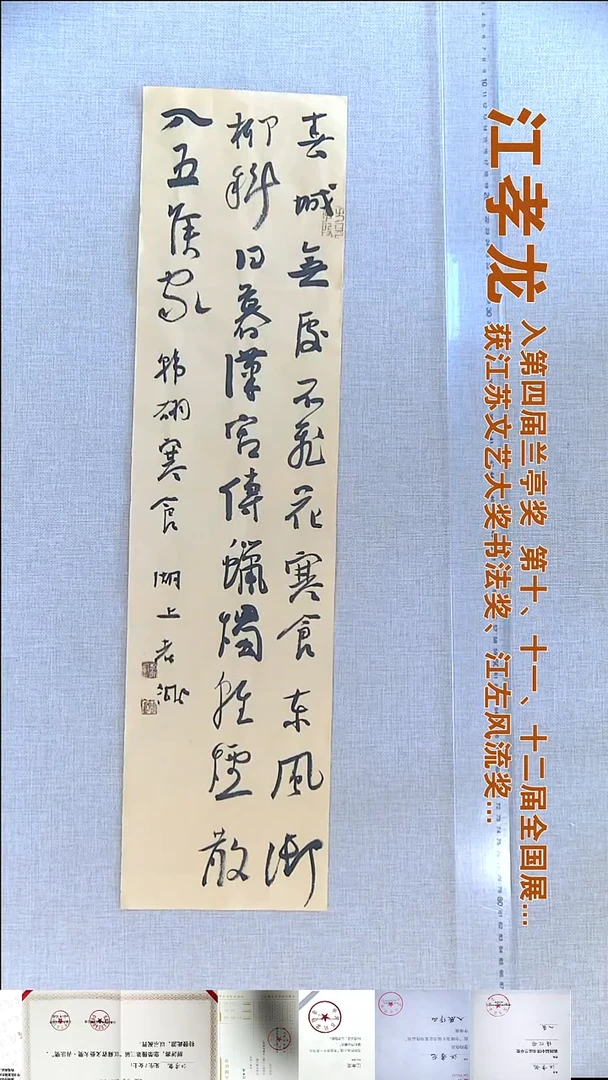 江孝龙
入第四届兰亭奖 第十、十一、十二届全国展...
获江苏文艺大奖书法奖、江左风流奖...
春城無處不飛花寒食東風御
柳斜日暮漢宮傳蠟燭輕煙散
入五侯家 韓翃寒食 湖上老龍